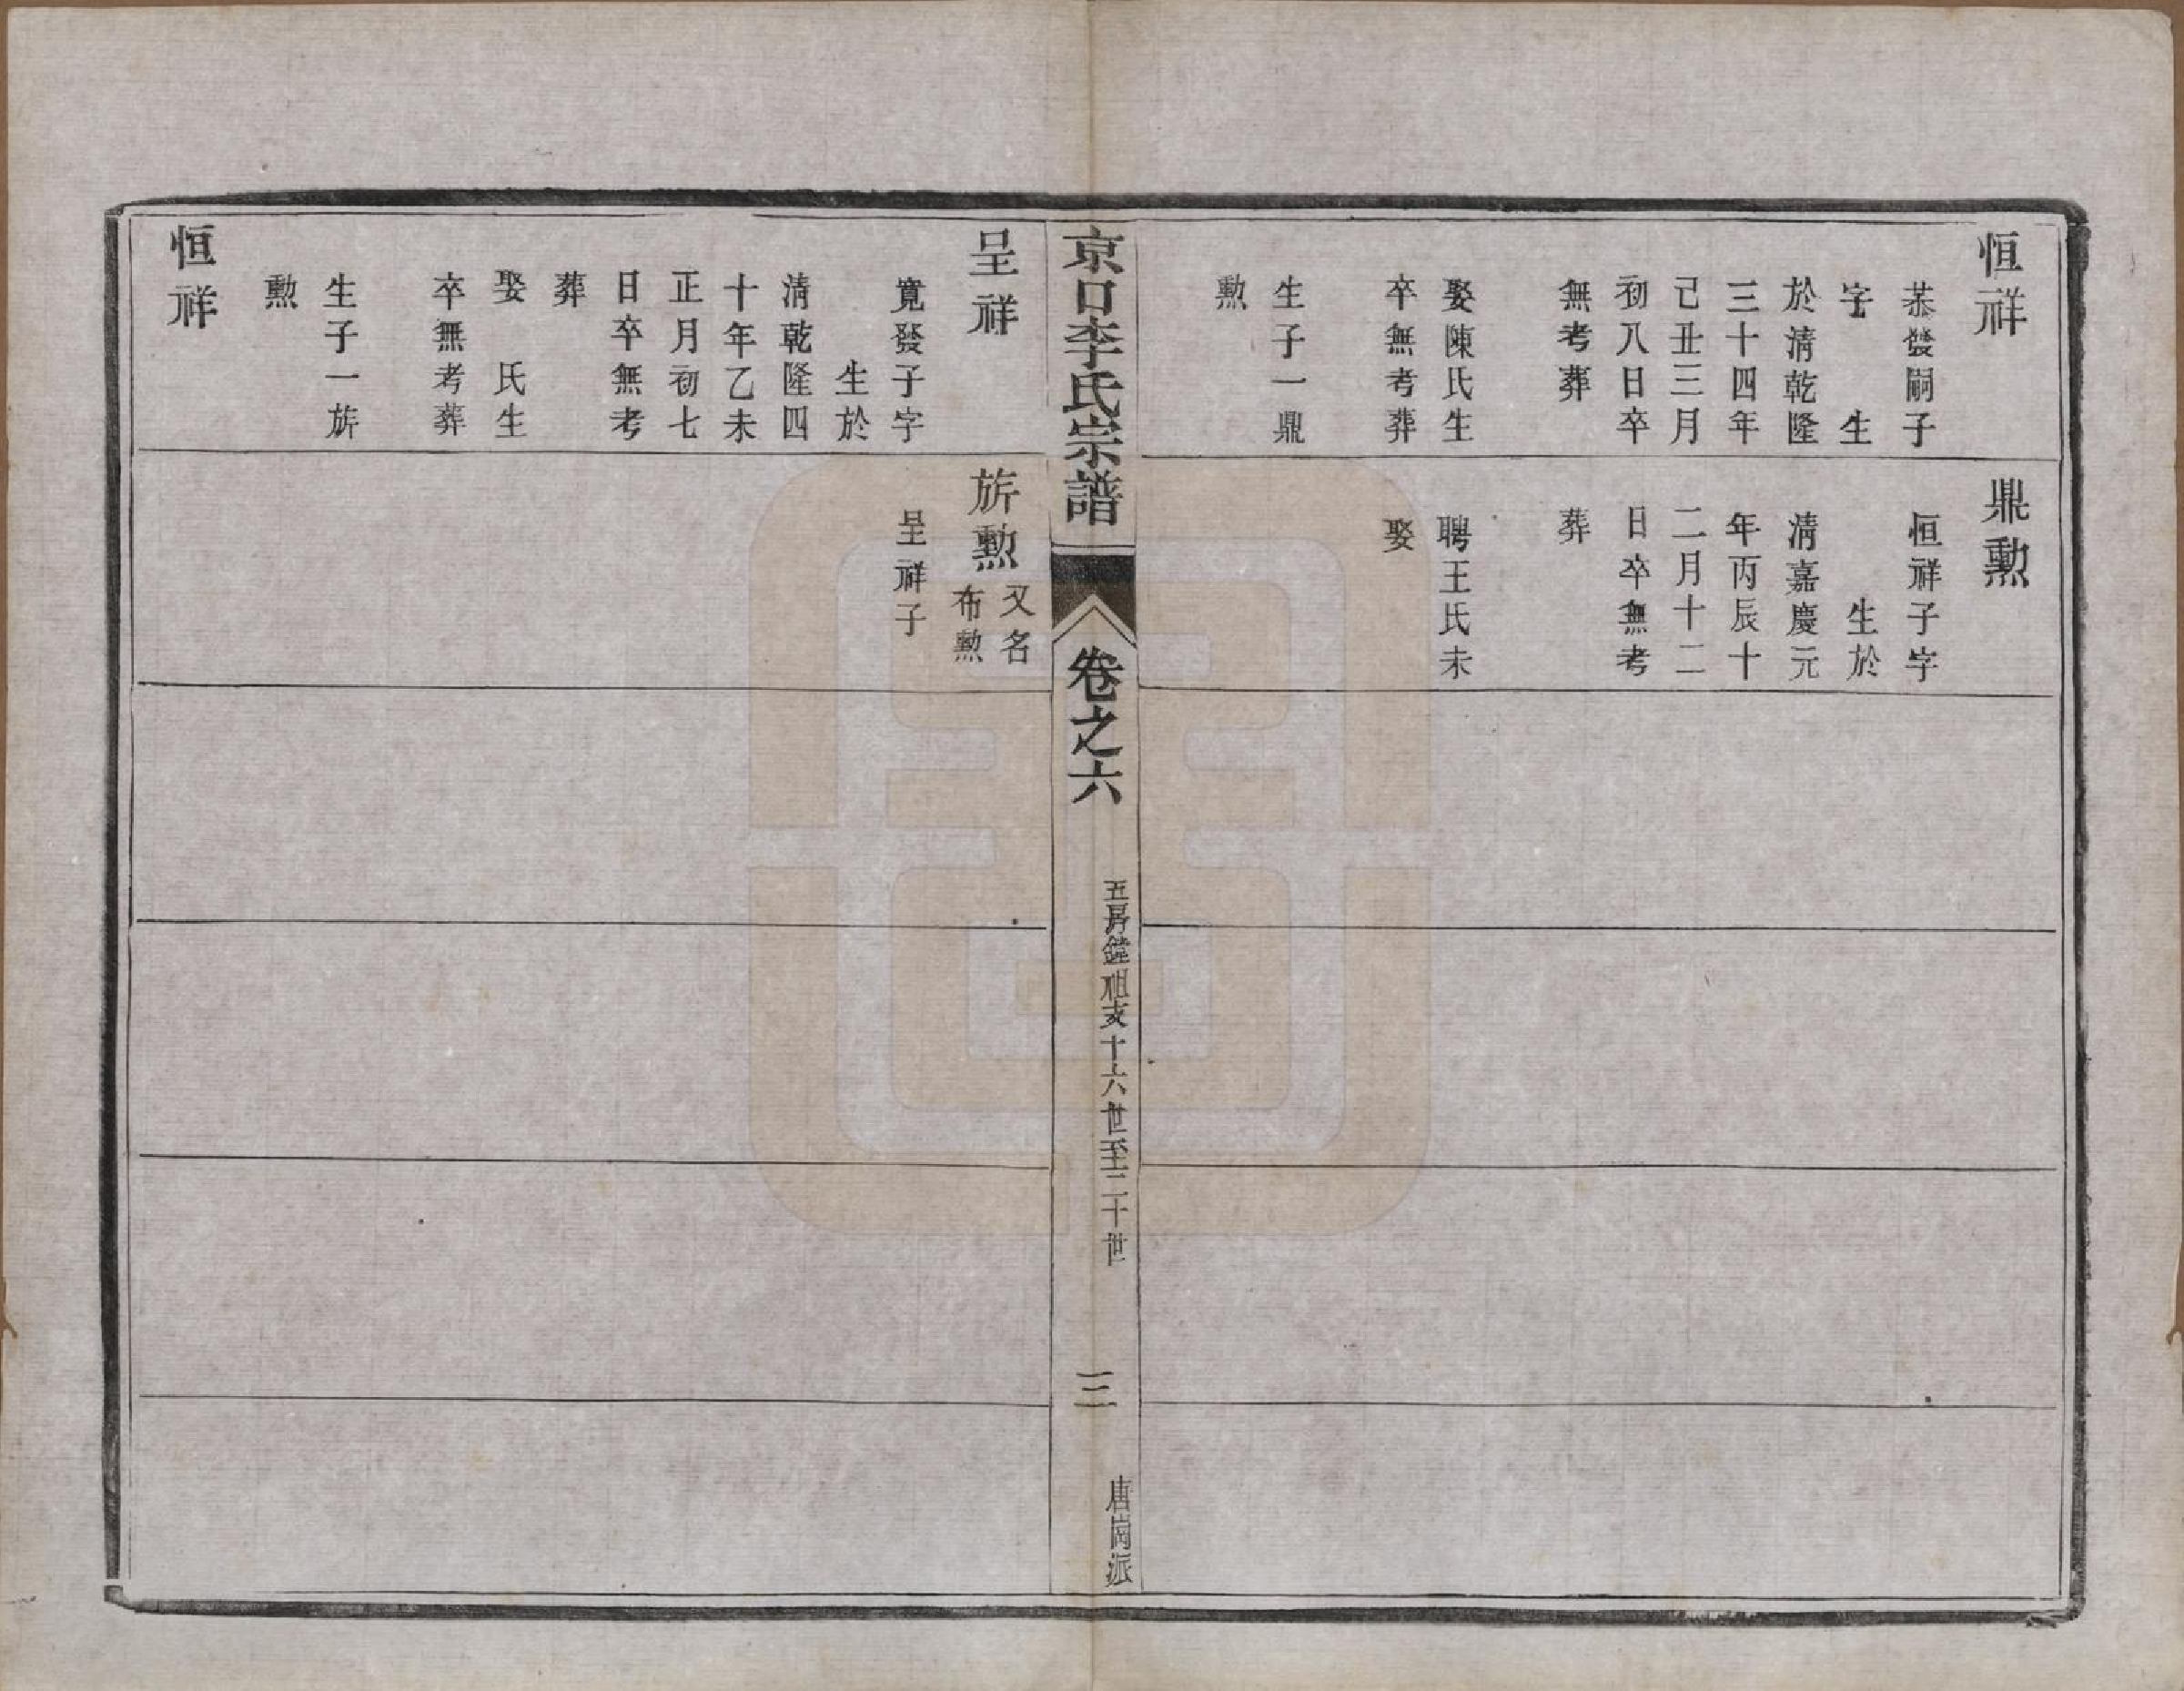 恒祥
恭發嗣子
字　生
於清乾隆
三十四年
己丑三月
初八日卒
無考葬
娶陳氏生
卒無考葬
生子一鼎
勲
鼎勲
恒祥子字
生於
清嘉慶元
年丙辰十
二月十二
日卒無考
葬
聘王氏未
娶
京口李氏宗譜
卷之六
五房鏜祖支十六世至二十世
三
唐崗派
呈祥
寬發子字
生於
清乾隆四
十年乙未
正月初七
日卒無考
葬
娶　氏生
卒無考葬
生子一旂
勲
旂勲
又名
布勲
呈祥子
恒祥